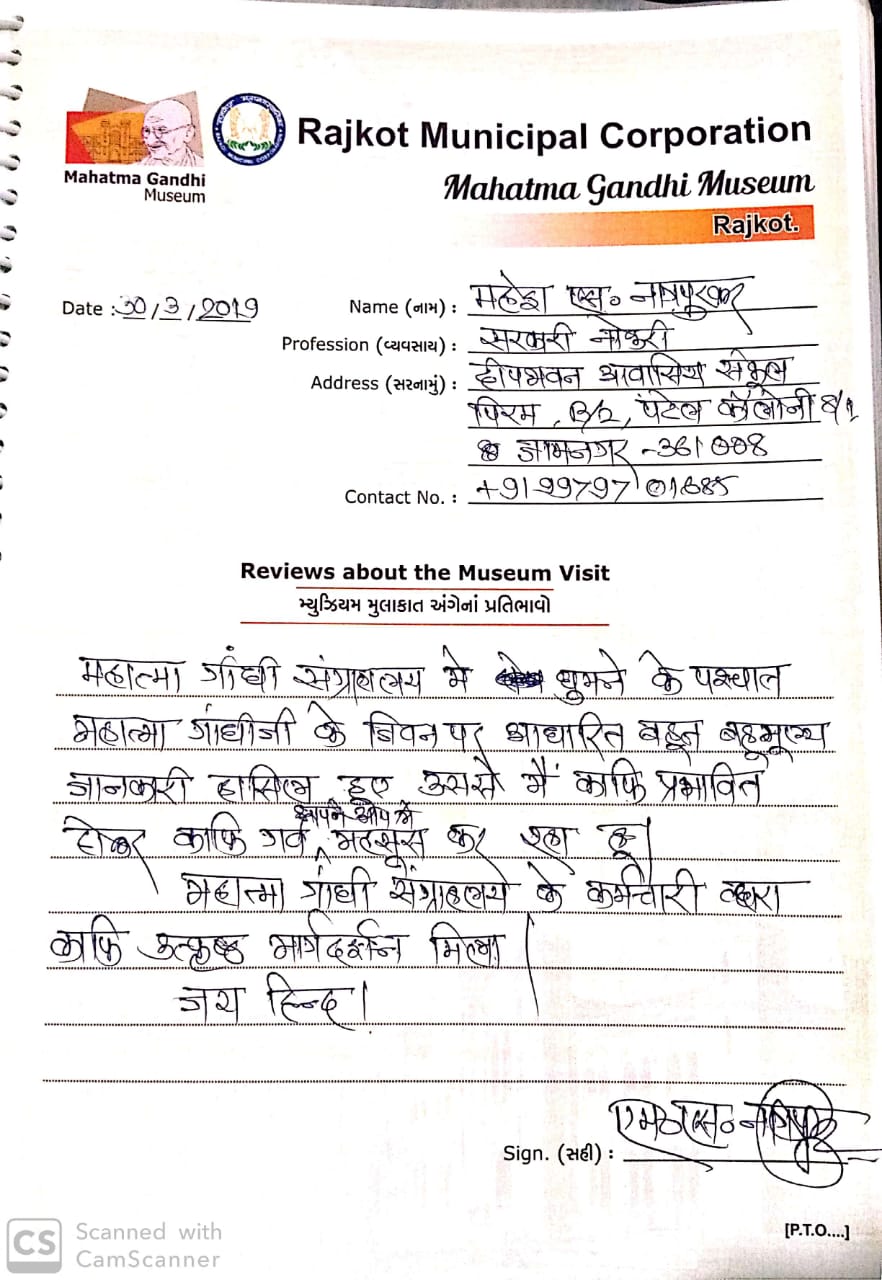 Mahatma Gandhi
Museum
Rajkot Municipal Corporation
Mahatma Gandhi Museum
Rajkot.
Date : 30/3/2019
Name (નામ) : महेश एस० नागपुरकर
Profession (વ્યવસાય) : सरकारी नोकरी
Address (સરનામું) : दीपभवन आवासिय संकुल
पिरम, B/2, पटेल कॉलोनी 8/1
जामनगर -361008
Contact No. : +91 99797 01685
Reviews about the Museum Visit
મ્યુઝિયમ મુલાકાત અંગેનાં પ્રતિભાવો
महात्मा गांधी संग्राहालय मे घुमने के पश्चात
महात्मा गांधीजी के जिवन पर आधारित बहुत बहुमूल्य
जानकारी हासिल हुए उससे में काफि प्रभावित
होकर काफि गर्व अपने आप में महसूस कर रहा हू।
महात्मा गांधी संग्राहलय के कर्मचारी व्दारा
काफि उत्कृष्ठ मार्गदर्शन मिला।
जय हिन्द।
Sign. (સહી) : एम० एस० नागपुरकर
[P.T.O....]
CS Scanned with
CamScanner